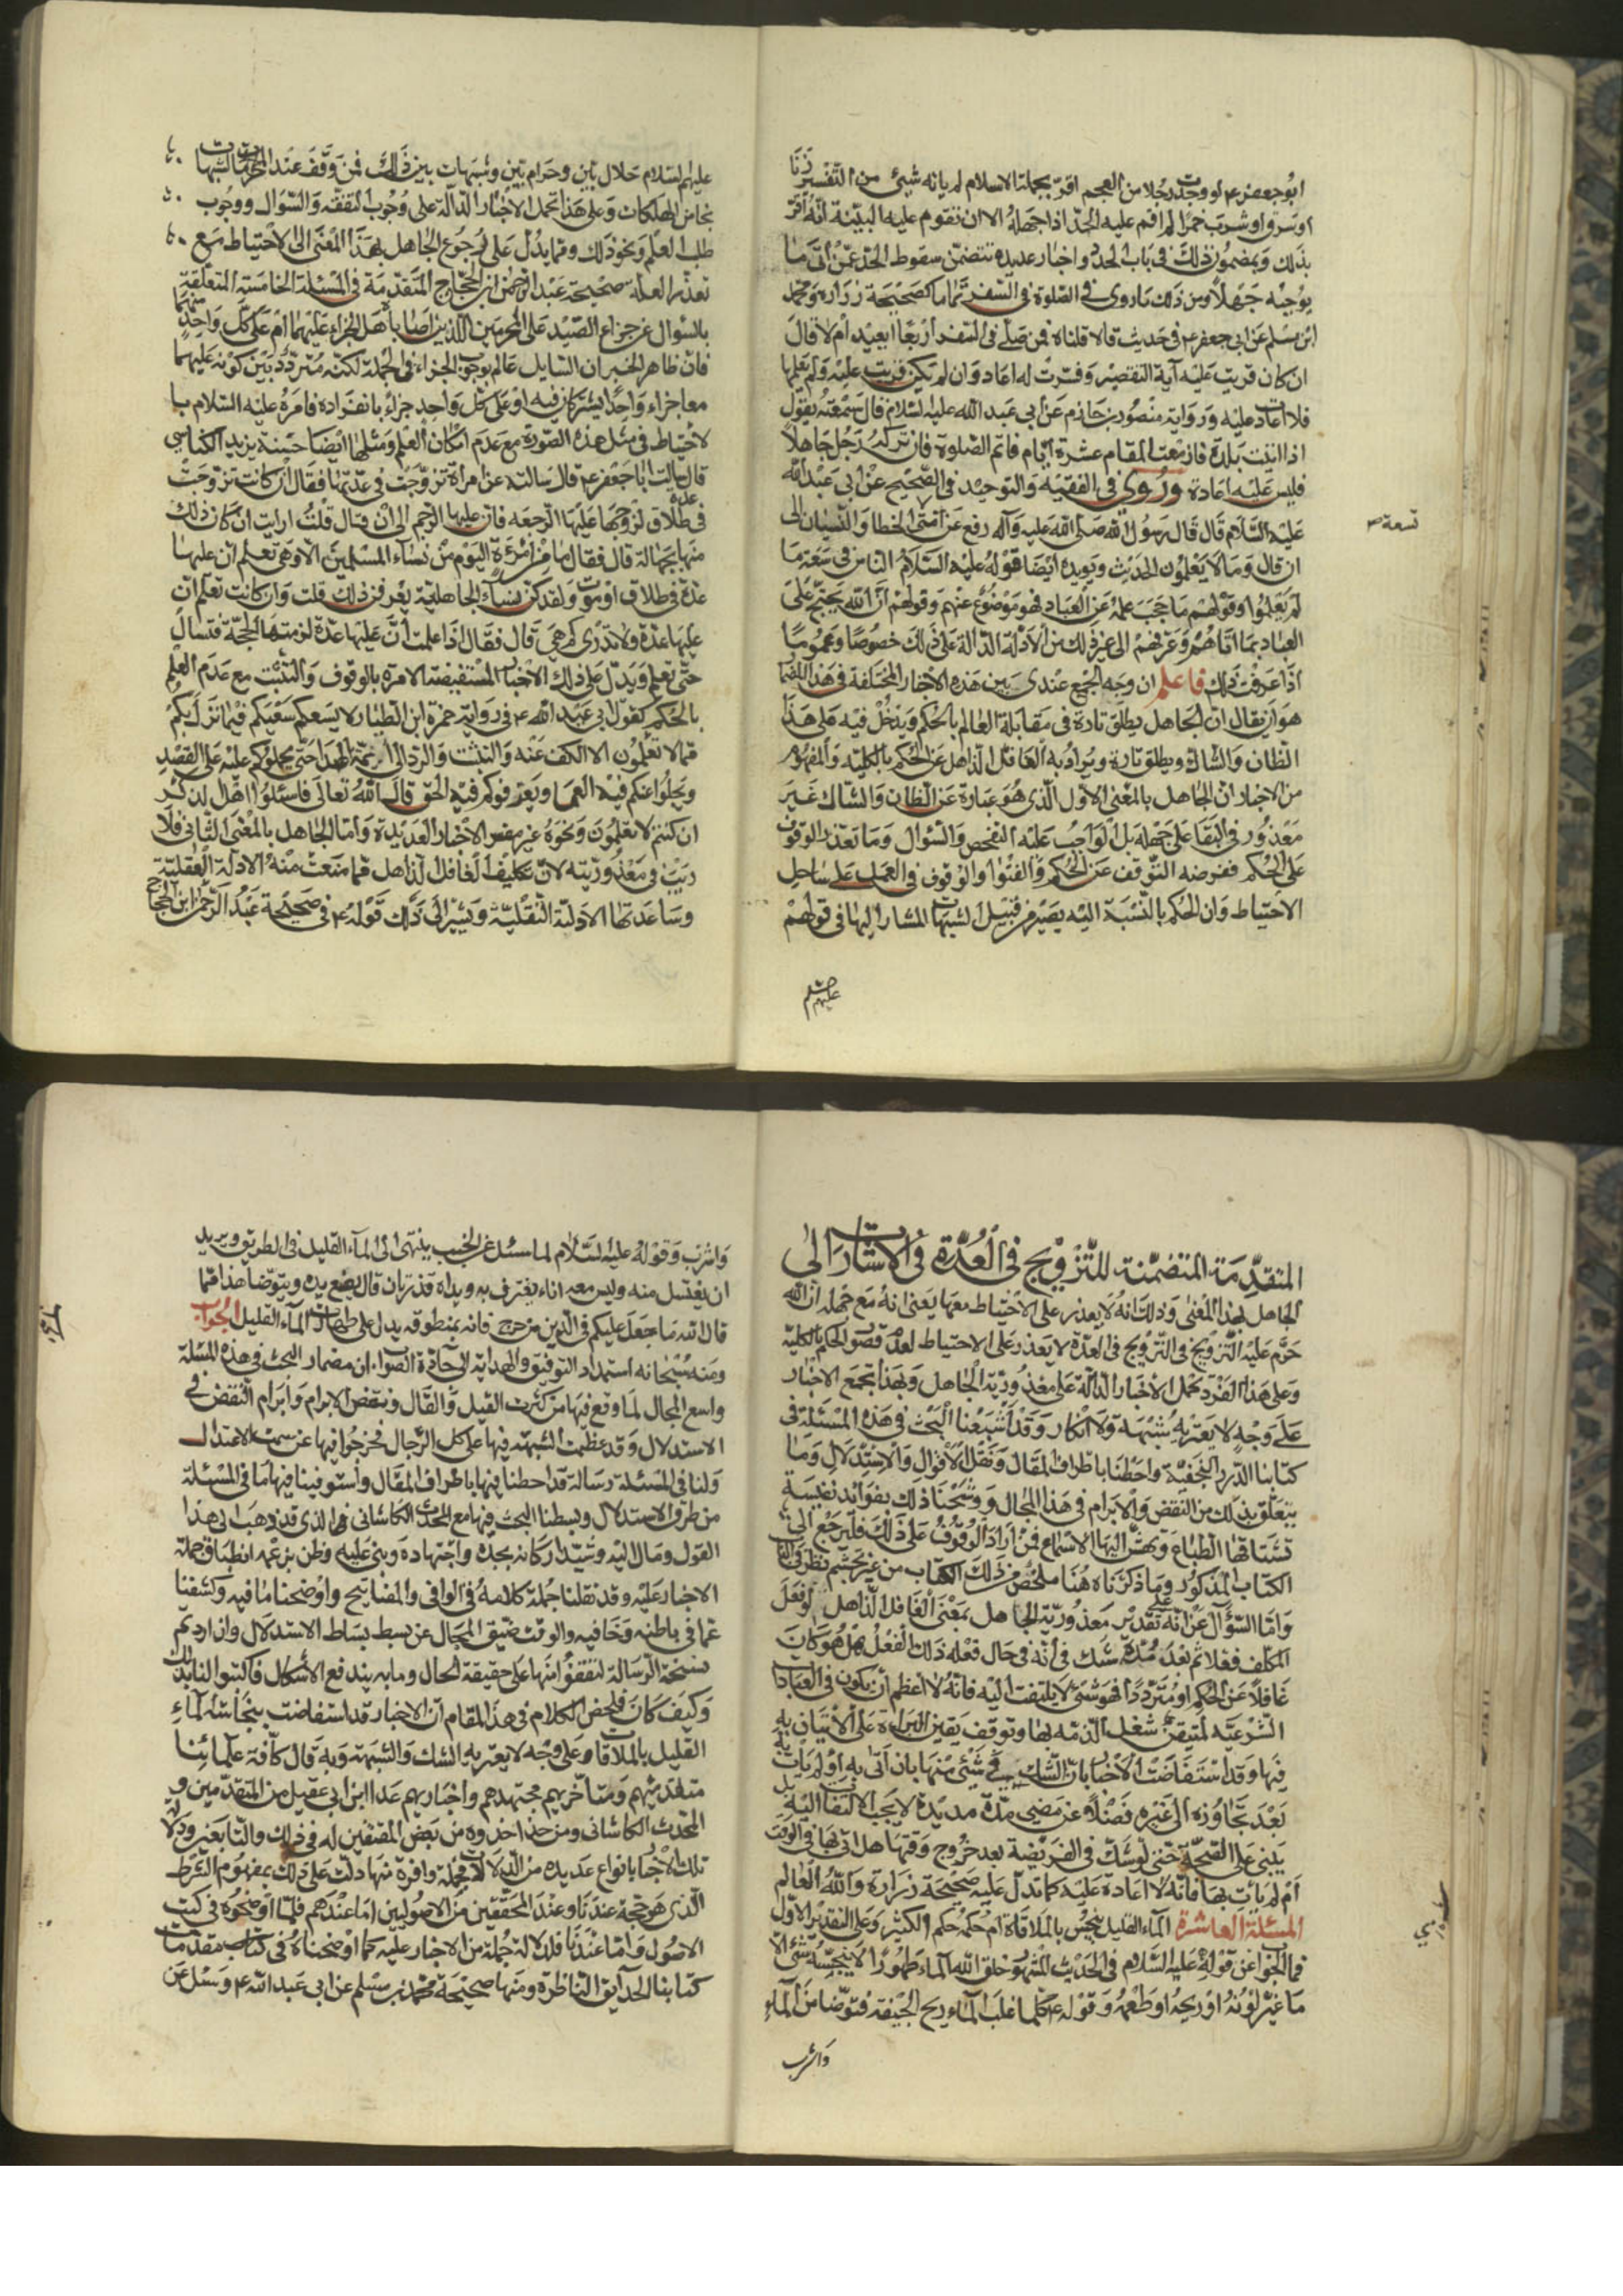 ابو جعفر ع لو وجدت رجلا من العجم اقرّ بجملة الاسلام لم ياته شيئ من التفسير زنا
او سرق او شرب خمرا لم اقم عليه الحدّ اذا جهله الا ان تقوم عليه البيّنة انّه اقرّ
بذلك وبمضمون ذلك في باب الحدّ واخبار عديده تتضمّن سقوط الحدّ عمّن اتى ما
يوجبه جهلا ومن ذلك ما روى في الصّلوة في السّفر تماما كصحيحة زرارة ومحمد
ابن مسلم عن ابي جعفر ع في حديث قالا قلنا له فمن صلّى في السّفر أربعا ايعيد ام لا قال
ان كان قريت عليه آية التقصير وفسّرت له اعاد وان لم تكن قريت عليه ولم يعلمها
فلا اعادة عليه ورواية منصور بن حازم عن ابي عبد الله عليه السّلام قال سمعته يقول
اذا اتيت بلدة فازمعت المقام عشرة ايّام فاتم الصّلوة فان تركه رجل جاهلا
فليس عليه اعادة وروى في الفقيه والتوحيد في الصّحيح عن ابي عبد الله
عليه السّلام قال قال رسول الله صلى الله عليه وآله رفع عن امّتى الخطا والنّسيان الى
تسعة
ان قال وما لا يعلمون الحديث ويويده ايضا قوله عليه السّلام الناس في سعة ما
لم يعلموا وقولهم ما حجب علمه عن العباد فهو موضوع عنهم وقولهم انّ الله يحتجّ على
العباد بما اتاهم وعرفهم الى غير ذلك من الأدلّة الدّالّة على ذلك خصوصا وعموما
اذا عرفت ذلك فاعلم ان وجه الجمع عندى بين هذه الأخبار المختلفة في هذا المقام
هو ان يقال انّ الجاهل يطلق تارة في مقابلة العالم بالحكم ويدخل فيه على هذا
الظّان والشاك ويطلق تارة ويراد به الغافل الذاهل عن الحكم بالكلية والمفهوم
من الاخبار انّ الجاهل بالمعنى الاوّل الّذى هو عبارة عن الظان والشاك غير
معذور في البقا على جهله بل الواجب عليه التفحص والسّؤال وما تعذر الوقوف
على الحكم ففرضه التّوقف عن الحكم والفتوا والوقوف في العمل على ساحل
الاحتياط وان الحكم بالنّسبة اليه يصير من قبيل الشبهات المشار اليها في قولهم
عليهم السلم
عليهم السّلام حلال بيّن وحرام بيّن وشبهات بين ذلك فمن وقف عند الشبهات
نجا من الهلكات وعلى هذا تحمل الاخبار الدّالّة على وجوب التفقه والسّؤال ووجوب
طلب العلم ونحو ذلك وممّا يدلّ على رجوع الجاهل بهذا المعنى الى الاحتياط مع
تعذّر العلم صحيحة عبد الرّحمن ابن الحجّاج المتقدّمة في المسئلة الخامسة المتعلّقة
بالسّؤال عن جزاء الصّيد على المحرمين الّذين اصابا هل الجزاء عليهما ام على كلّ واحد منهما
فانّ ظاهر الخبر ان السّايل عالم بوجوب الجزاء في الجملة لكنّه متردّد بين كونه عليهما
معا جزاء واحدا يشتركان فيه او على كلّ واحد جزاء بانفراده فامره عليه السّلام با
لاحتياط في مثل هذه الصّورة مع عدم امكان العلم ومثلها ايضا حسنة يزيد الكناسي
قال سالت ابا جعفر ع قال سالته عن امراة تزوّجت في عدّتها فقال ان كانت تزوّجت
في عدة طلاق لزوجها عليها الرّجعه فانّ عليها الرّجم الى ان قال قلت ارايت ان كان ذلك
منها بجهالة قال فقال ما من امرءة اليوم من نساء المسلمين الا وهى تعلم انّ عليها
عدّة في طلاق او موت ولقد كنّ نساء الجاهليّة يعرفن ذلك قلت وان كانت تعلم انّ
عليها عدّة ولا تدرى كم هى قال فقال اذا علمت أنّ عليها عدّة لزمتها الحجّة فتسال
حتّى تعلم ويدلّ على ذلك الاخبار المستفيضة الامرة بالوقوف والتثبّت مع عدم العلم
بالحكم كقول ابي عبد الله ع في رواية حمزة ابن الطيار لا يسعكم فيما نزل بكم
ممّا لا تعلمون الا الكف عنه والتثبّت والرّد الى ائمة الهدى حتّى يحملوكم عليه على القصد
ويجلوا عنكم فيه العما ويعرفوكم فيه الحقّ قال الله تعالى فاسئلوا اهل الذكر
ان كنتم لا تعلمون ونحوه غيره من الاخبار العديدة وامّا الجاهل بالمعنى الثّانى فلا
ريب في معذوريّته لانّ تكليف الغافل الذاهل ممّا منعت منه الادلّة العقليّة
وساعدتها الادلّة النّقليّة ويشير الى ذلك قوله ع في صحيحة عبد الرّحمن ابن الحجاج
المتقدّمة المتضمّنة للتّزويج في العُدّة في الاشارة الى
الجاهل بهذا المعنى وذلك انّه لا يعذر على الاحتياط معها يعنى انه مع جهله انّ الله
حرّم عليه التّزويج في العدّة لا يقدر على الاحتياط لعدم تصوّر الحكم بالكليّة
وعلى هذا الفرد تحمل الاخبار الدّالّة على معذوريّة الجاهل وبهذا تجمع الاخبار
على وجه لا يعتريه شبهة ولا انكار وقد اشبعنا البحث في هذه المسئلة في
كتابنا الدّرر النجفيّة واحطنا باطراف المقال ونقل الأقوال والاستدلال وما
يتعلّق بذلك من النقض والابرام في هذا المجال ووشّحنا ذلك بفوائد نفيسة
تشتاقها الطباع وتهشّ اليها الاسماع فمن اراد الوقوف على ذلك فليرجع الى
الكتاب المذكور وما ذكرناه هنا ملخّص من ذلك الكتاب من غير تجشم نظر
وامّا السّؤال عن انّه على تقدير معذوريّة الجاهل بمعنى الغافل الذّاهل لو فعل
المكلّف فعلا ثم بعد مدّة شكّ في أنّه في حال فعله ذلك الفعل هل هو كان
غافلا عن الحكم او متردّدا فهو شئ لا يلتفت اليه فانّه لا اعظم ان يكون في العبادات
الشّرعيّة المتيقن شغل الذمّة بها وتوقف يقين البراءة على الاتيان به
فيها وقد استفاضت الأخبار بان الشّك في شئ منها بان أتى به او لم يات به
بعد تجاوزه الى غيره فضلا عن مضى مدّة مديدة لا يجب الالتفات اليه بل
يبنى على الصّحّة حتى لو شكّ في الفريضة بعد خروج وقتها هل اتى بها في الوقت
أم لم يات بها فانّه لا اعادة عليه كما تدلّ عليه صحيحة زرارة والله العالم
المسئلة العاشرة الماء القليل ينجس بالملاقاة أم حكمه حكم الكثير وعلى التقدير الأوّل
فما الجواب عن قوله عليه السّلام في الحديث المشهور خلق الله الماء طهورا لا ينجسه شئ الا
ما غيّر لونه او ريحه او طعمه وقوله ع كلما غلب الماء ريح الجيفة فتوضّا من الماء
واشرب
واشرب وقوله عليه السّلام لما سئل عن الجنب ينتهى الى الماء القليل في الطريق ويريد
ان يغتسل منه وليس معه اناء يغترف به ويداه قذرتان قال يضع يده ويتوضّا هذا ممّا
قال الله ما جعل عليكم في الدّين من حرج فانه بمنطوقه يدل على طهارة الماء القليل الجواب
ومنه سبحانه استمداد التوفيق والهداية الى جادّة الصواب ان مضمار البحث في هذه المسئلة
واسع المجال لما وقع فيها من كثرة القيل والقال ونقض الابرام وابرام النقض في
الاستدلال وقد عظمت الشبهة فيها على كل الرّجال فخرجوا فيها عن سمت الاعتدال
ولنا في المسئلة رسالة قد احطنا فيها باطراف المقال واستوفينا فيها ما في المسئلة
من طرق الاستدلال وبسطنا البحث فيها مع المحدّث الكاشانى الذى قد ذهب الى هذا
القول ومال اليه وشيّد اركانه بجدّه واجتهاده وبنى عليه وظن بزعمه انطباق جملة
الاخبار عليه وقد نقلنا جملة كلامه في الوافى والمفاتيح واوضحنا ما فيه وكشفنا
عما في باطنه وخافيه والوقت ضيق المجال عن بسط بساط الاستدلال وان اردتم
نسخة الرّسالة لتقفوا منها على حقيقة الحال وما به يندفع الأشكال فاكتبوا لنا بذلك
وكيف كان فملخص الكلام في هذا المقام انّ الاخبار قد استفاضت بنجاسة الماء
القليل بالملاقاة وعلى وجه لا يعتريه الشك والشبهة وبه قال كآفة علمائنا
متقدّميهم ومتأخّريهم مجتهدهم واخباريهم عدا ابن ابي عقيل من المتقدّمين و
المحدث الكاشانى ومن حذا حذوه من بعض المقتفين له في ذلك
تلك الأخبار بانواع عديده من الدّلالات فجملة وافرة منها دلّت على ذلك بمفهوم الشّرط
الّذى هو حجّة عندنا وعند المحقّقين من الاصوليين امّا عندهم فلما اوضحوه في كتب
الاصول وامّا عندنا فلدلالة جملة من الاخبار عليه كما اوضحناه في كتاب مقدّمات
كتابنا الحدايق النّاظرة ومنها صحيحة محمّد بن مسلم عن ابي عبد الله ع وسئل عن